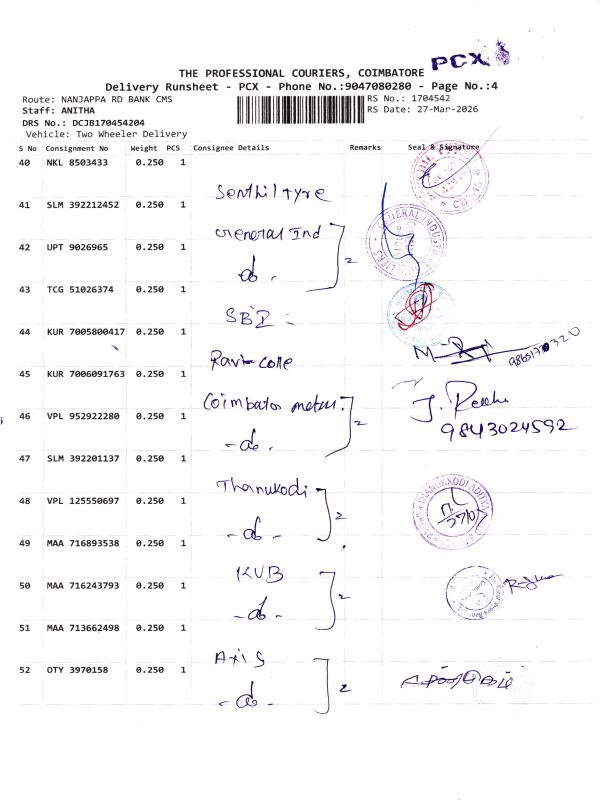 PCX
THE PROFESSIONAL COURIERS, COIMBATORE
Delivery Runsheet - PCX - Phone No.:9047080280 - Page No.:4
Route: NANJAPPA RD BANK CMS
Staff: ANITHA
DRS No.: DCJB170454204
Vehicle: Two Wheeler Delivery
RS No.: 1704542
RS Date: 27-Mar-2026
S No Consignment No Weight PCS Consignee Details Remarks Seal & Signature
40 NKL 8503433 0.250 1
Senthil tyre
41 SLM 392212452 0.250 1
General Ind
42 UPT 9026965 0.250 1
-do- 2
43 TCG 51026374 0.250 1
SBI
44 KUR 7005800417 0.250 1
45 KUR 7006091763 0.250 1
Coimbatore
46 VPL 952922280 0.250 1
-do- 2
9843024592
47 SLM 392201137 0.250 1
Thanukodi
48 VPL 125550697 0.250 1
-do- 2
49 MAA 716893538 0.250 1
KVB
50 MAA 716243793 0.250 1
-do- 2
51 MAA 713662498 0.250 1
Axis
52 OTY 3970158 0.250 1
-do- 2